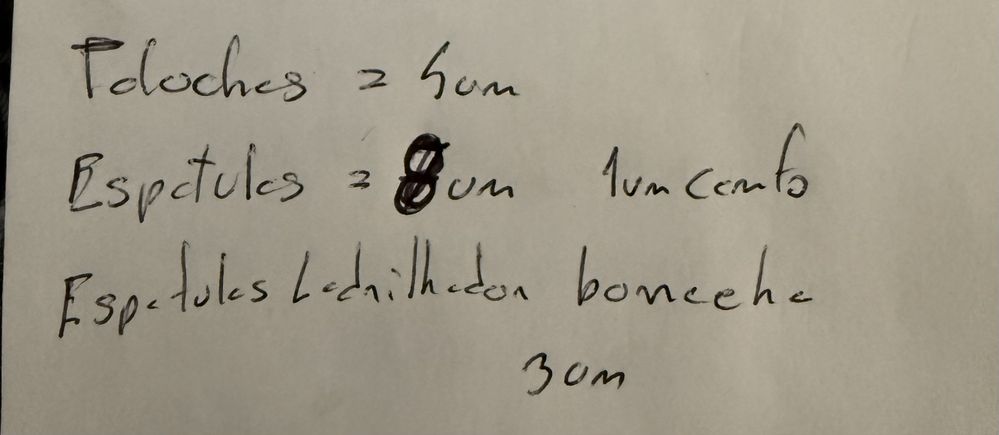 Taloches = 5 um
Espatulas = 8 um 1 um canto
Espatulas Ladrilhador borracha
3 um